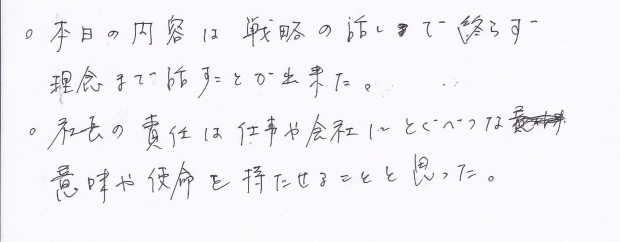 ○ 本日の内容は戦略の話しで終らず
理念まで話すことが出来た。
○ 社長の責任は仕事や会社にとくべつな
意味や使命を持たせることと思った。